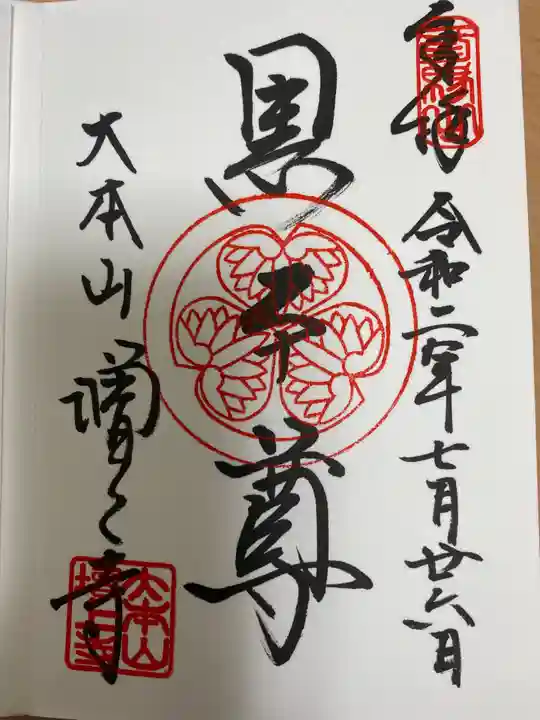 令和二年七月廿六日
黒本尊
大本山増上寺
大本山
増上寺